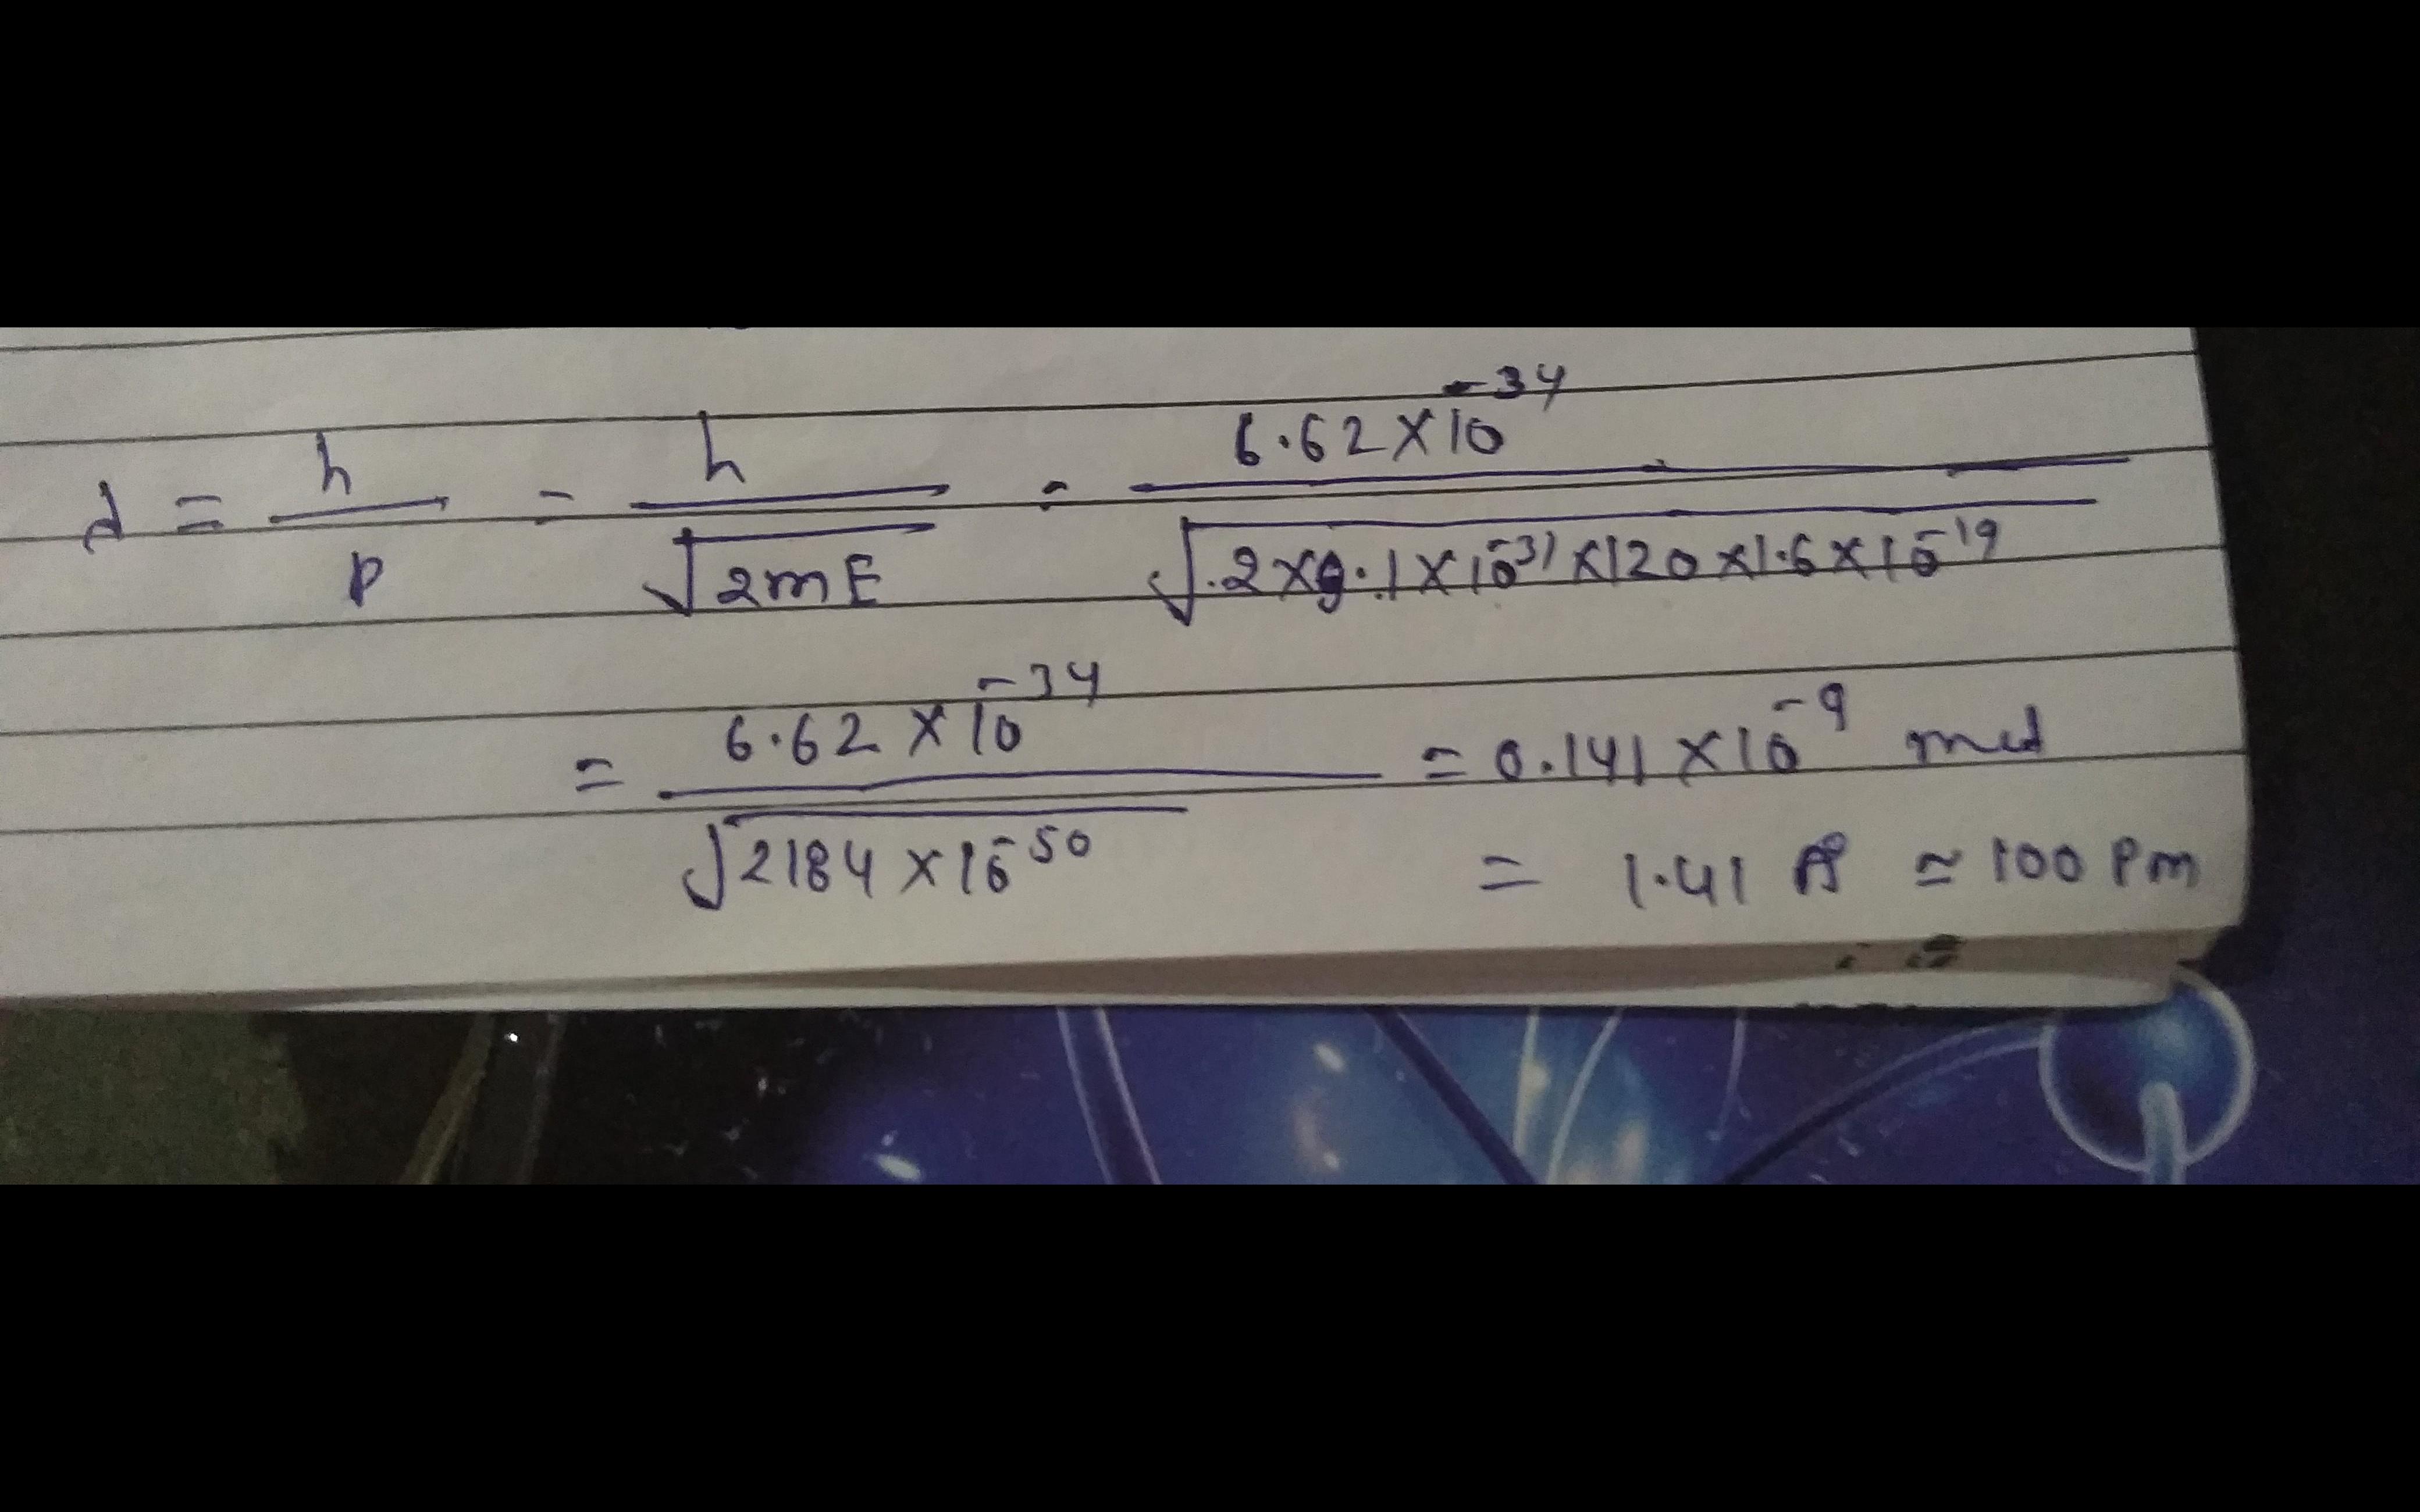 λ = h/p = h/√2mE = 6.62×10^-34/√.2×9.1×10^-31×120×1.6×10^-19
= 6.62×10^-34/√2184×10^-50 = 0.141×10^-9
= 1.41 Å ≃ 100 Pm